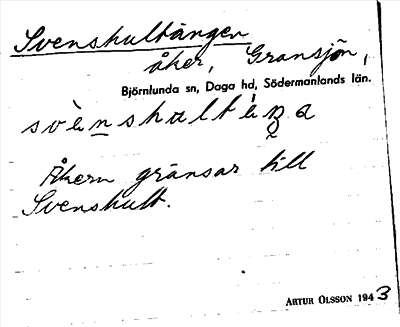 Svenshultängen
åker, Gransjön,
Björnlunda sn, Daga hd, Södermanlands län.
Åkern gränsar till
Svenshult.
ARTUR OLSSON 1943